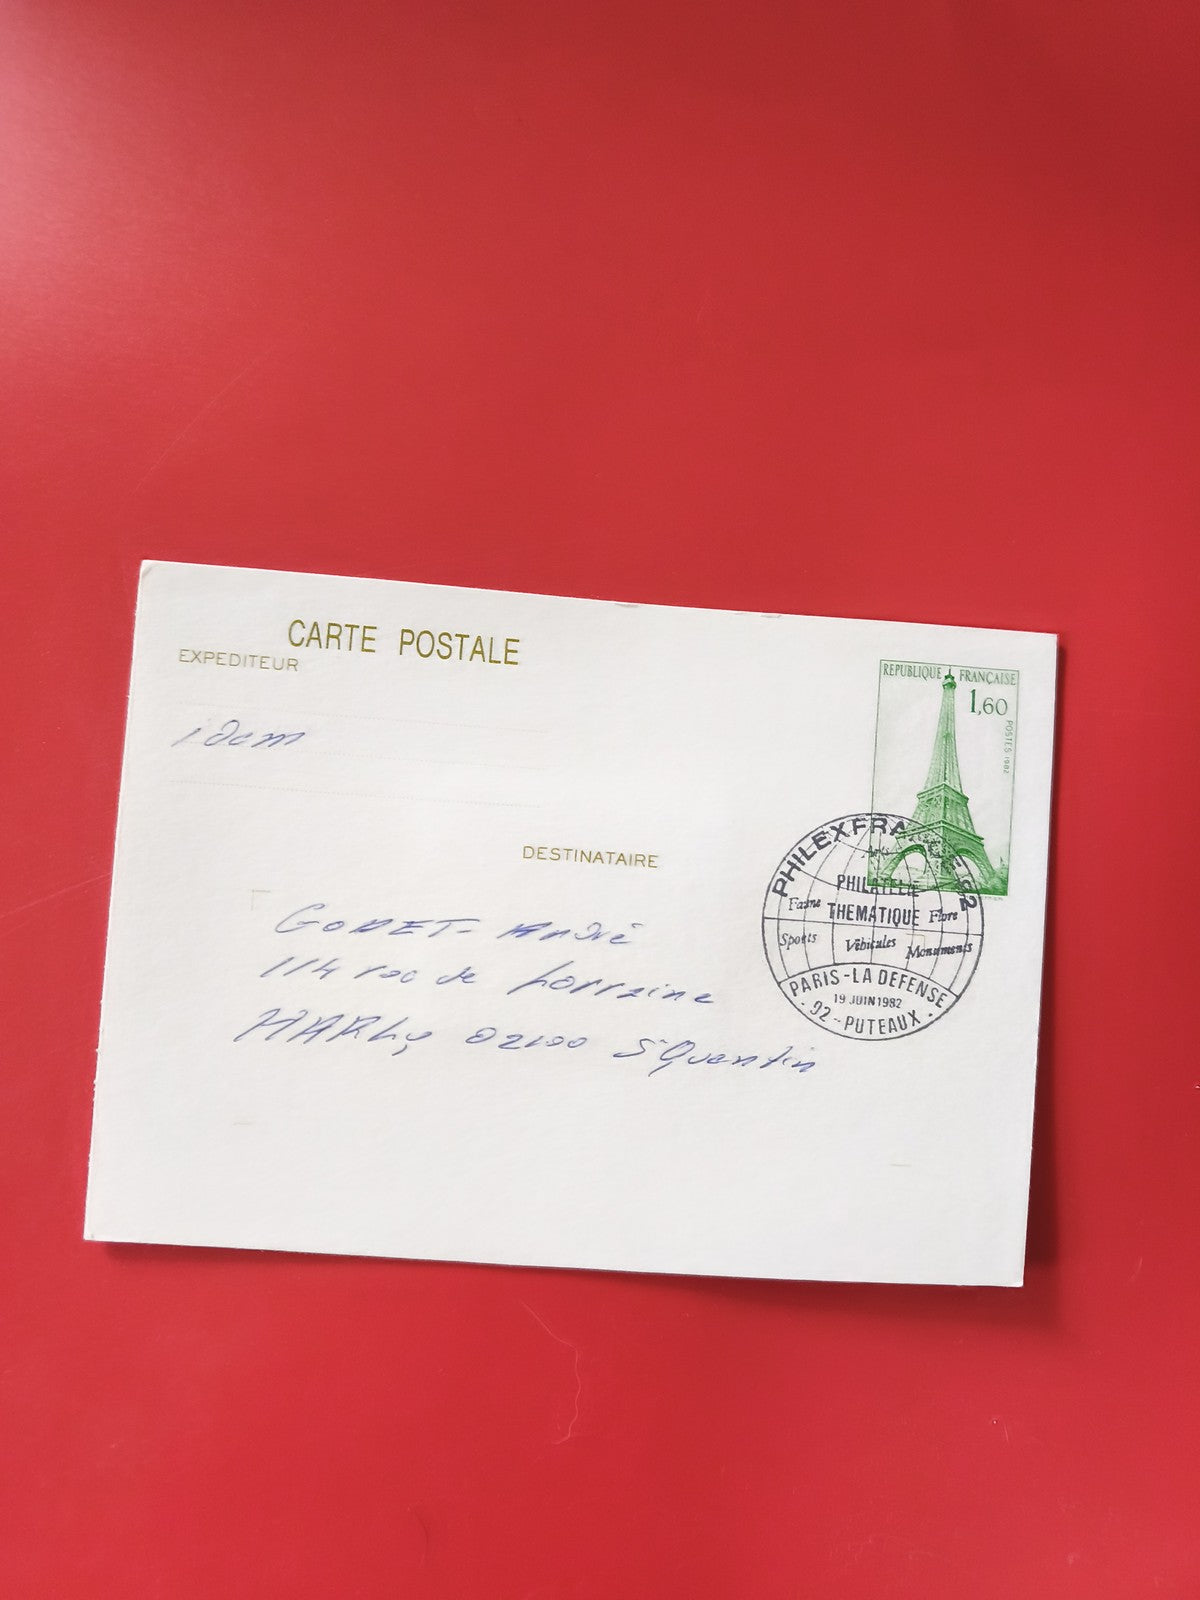 CARTE POSTALE
EXPEDITEUR
idem
REPUBLIQUE FRANÇAISE
1,60
POSTES 1982
DESTINATAIRE
GODET - André
114 rue de Lorraine
HARLY 02100 St Quentin
PHILEXFRANCE 82
Arts
PHILATELIE
Faune THEMATIQUE Flore
Sports Véhicules Monuments
PARIS - LA DEFENSE
19 JUIN 1982
- 92 - PUTEAUX -